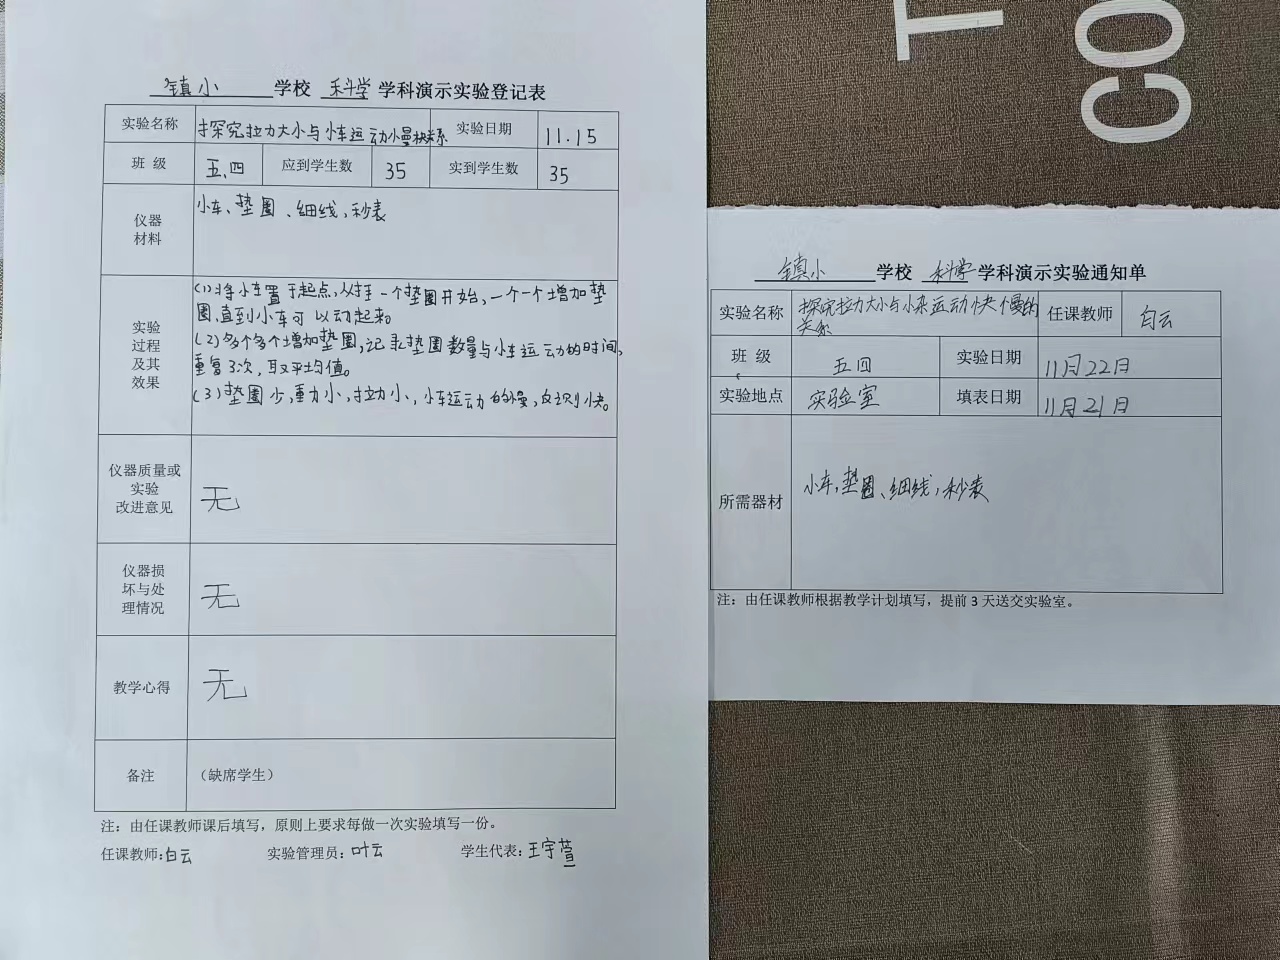 镇小 学校 科学 学科演示实验登记表
实验名称 探究拉力大小与小车运动快慢的关系 实验日期 11.15
班 级 五.四 应到学生数 35 实到学生数 35
仪器
材料
小车、垫圈、细线,秒表
实验
过程
及其
效果
(1)将小车置于起点,从挂一个垫圈开始,一个一个增加垫
圈,直到小车可以动起来。
(2)多个多个增加垫圈,记录垫圈数量与小车运动的时间,
重复3次,取平均值。
(3)垫圈少,重力小,拉力小,小车运动的慢,反之则快。
仪器质量或
实验
改进意见
无
仪器损
坏与处
理情况
无
教学心得 无
备注 (缺席学生)
注:由任课教师课后填写,原则上要求每做一次实验填写一份。
任课教师:白云 实验管理员:叶云 学生代表:王宇萱
T
CO
镇小 学校 科学 学科演示实验通知单
实验名称 探究拉力大小与小车运动快慢的
关系
任课教师 白云
班 级 五四 实验日期 11月22日
实验地点 实验室 填表日期 11月21日
所需器材 小车,垫圈、细线,秒表
注:由任课教师根据教学计划填写,提前3天送交实验室。